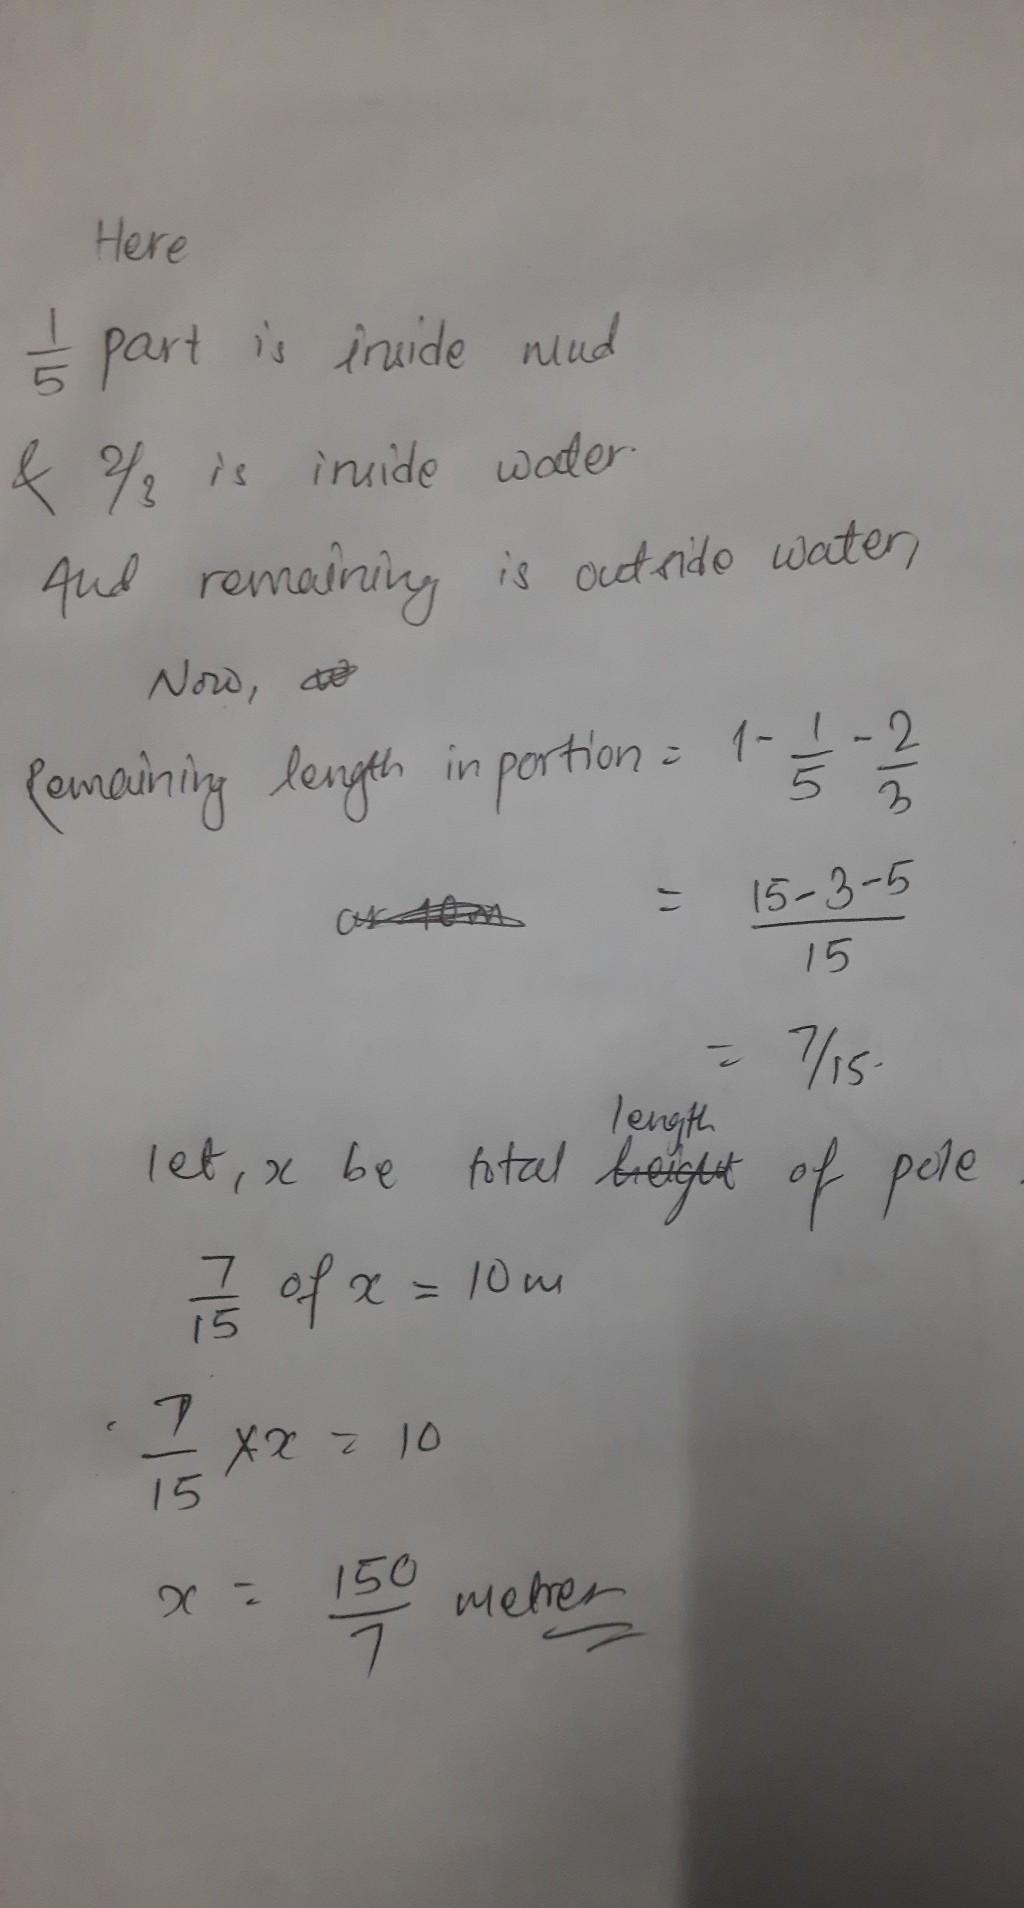 Here
1/5 part is inside mud
& 2/3 is inside water.
And remaining is outside water,
Now,
Remaining length in portion = 1 - 1/5 - 2/3
= 15-3-5/15
= 7/15.
let, x be total length of pole.
7/15 of x = 10m
7/15 × x = 10
x = 150/7 metres